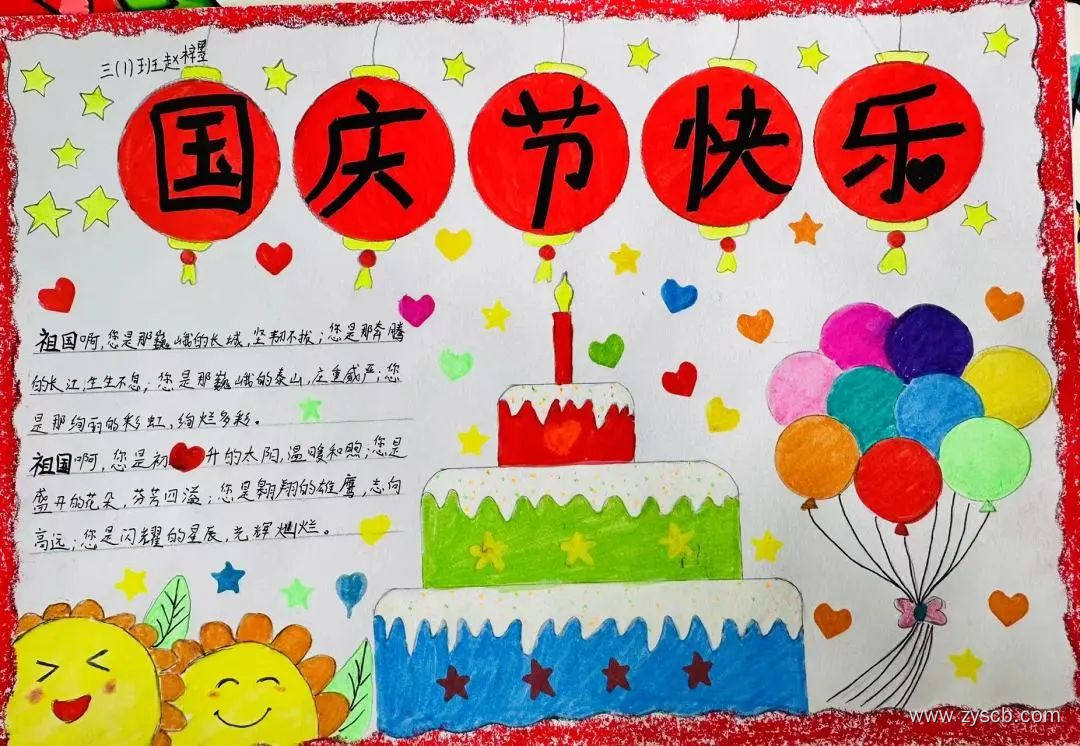 三(1)班赵梓墨
国庆节快乐
祖国啊,您是那巍峨的长城,坚韧不拔;您是那奔腾
的长江,生生不息;您是那巍峨的泰山,庄重威严;您
是那绚丽的彩虹,绚烂多彩。
祖国啊,您是初升的太阳,温暖和煦;您是
盛开的花朵,芬芳四溢;您是翱翔的雄鹰,志向
高远;您是闪耀的星辰,光辉灿烂。
www.zyscb.com